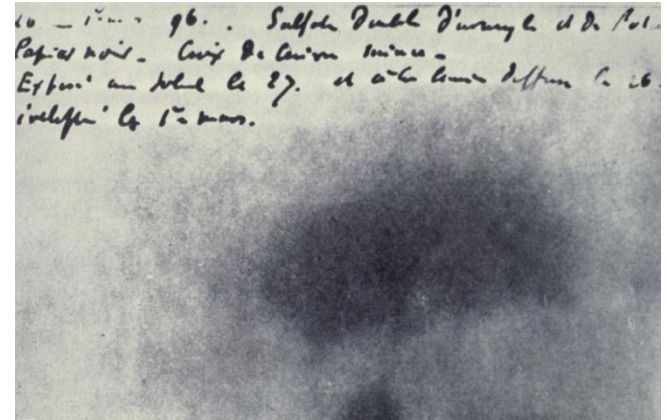 96. . Sulfate double d'uranyle et de
Papier noir. Croix de cuivre mince.
Exposé au soleil le 27. et à la lumière diffuse le 26.
le 1er mars.